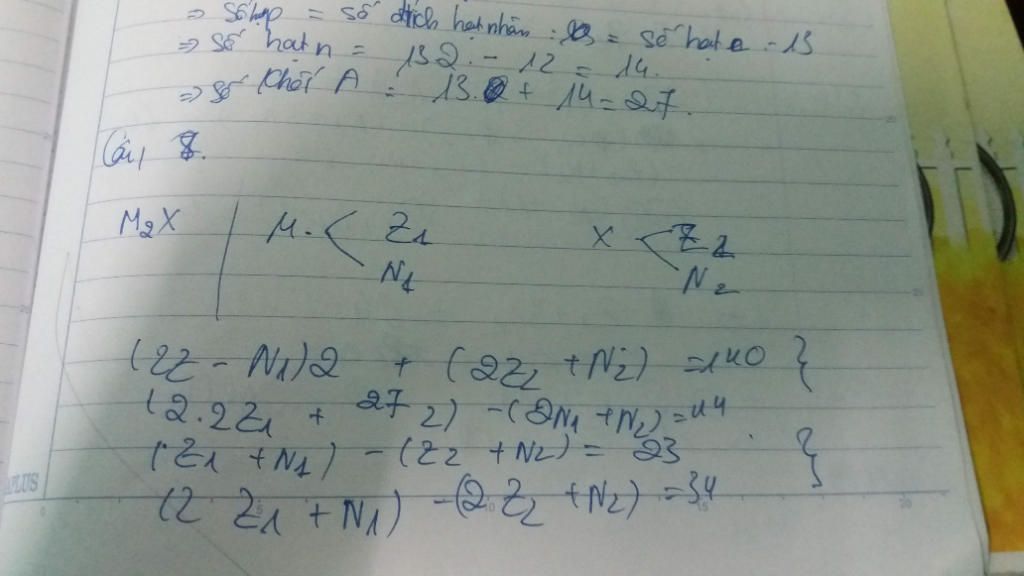 ⇒ Số hạt p = số đtích hạt nhân = số hạt e = 13
⇒ số hạt n = 132 - 12 = 14.
⇒ số khối A = 13 + 14 = 27.
Câu 8.
M2X | M. < Z1 X < Z2
N1 N2
(2Z - N1)2 + (2Z2 + N2) = 140 }
(2.2Z1 + 2Z 2) - (2N1 + N2) = 44
(Z1 + N1) - (Z2 + N2) = 23 }
(2 Z1 + N1) - (2 Z2 + N2) = 34
PLUS